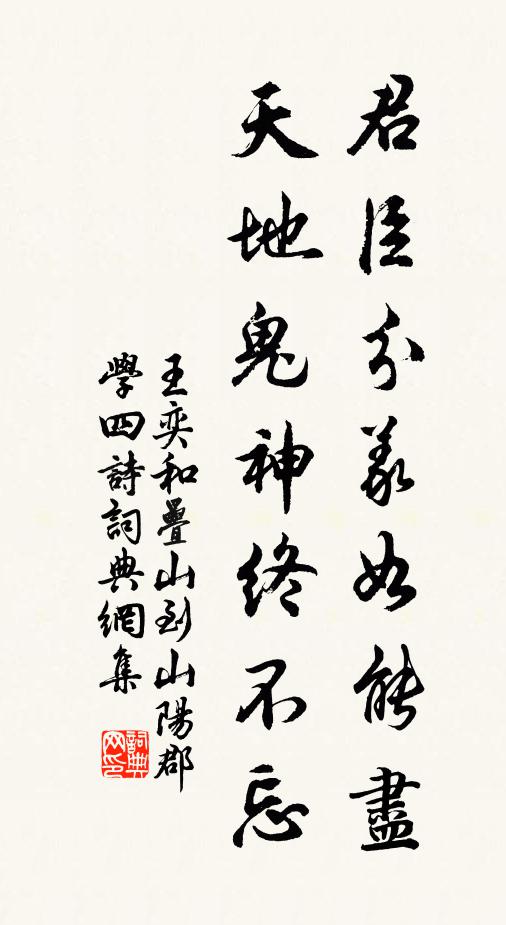 君臣分義如能盡
天地鬼神終不忘
王奕和疊山到山陽郡
學四詩詞典網集
詞典網印